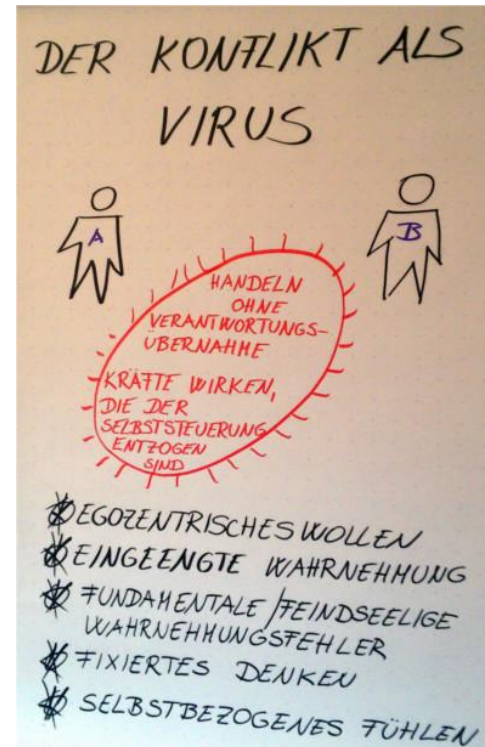 DER KONFLIKT ALS
VIRUS
A
B
HANDELN
OHNE
VERANTWORTUNGS-
ÜBERNAHME
KRÄFTE WIRKEN,
DIE DER
SELBSTSTEUERUNG
ENTZOGEN
SIND
EGOZENTRISCHES WOLLEN
EINGEENGTE WAHRNEHMUNG
FUNDAMENTALE/FEINDSEELIGE
WAHRNEHMUNGSFEHLER
FIXIERTES DENKEN
SELBSTBEZOGENES FÜHLEN